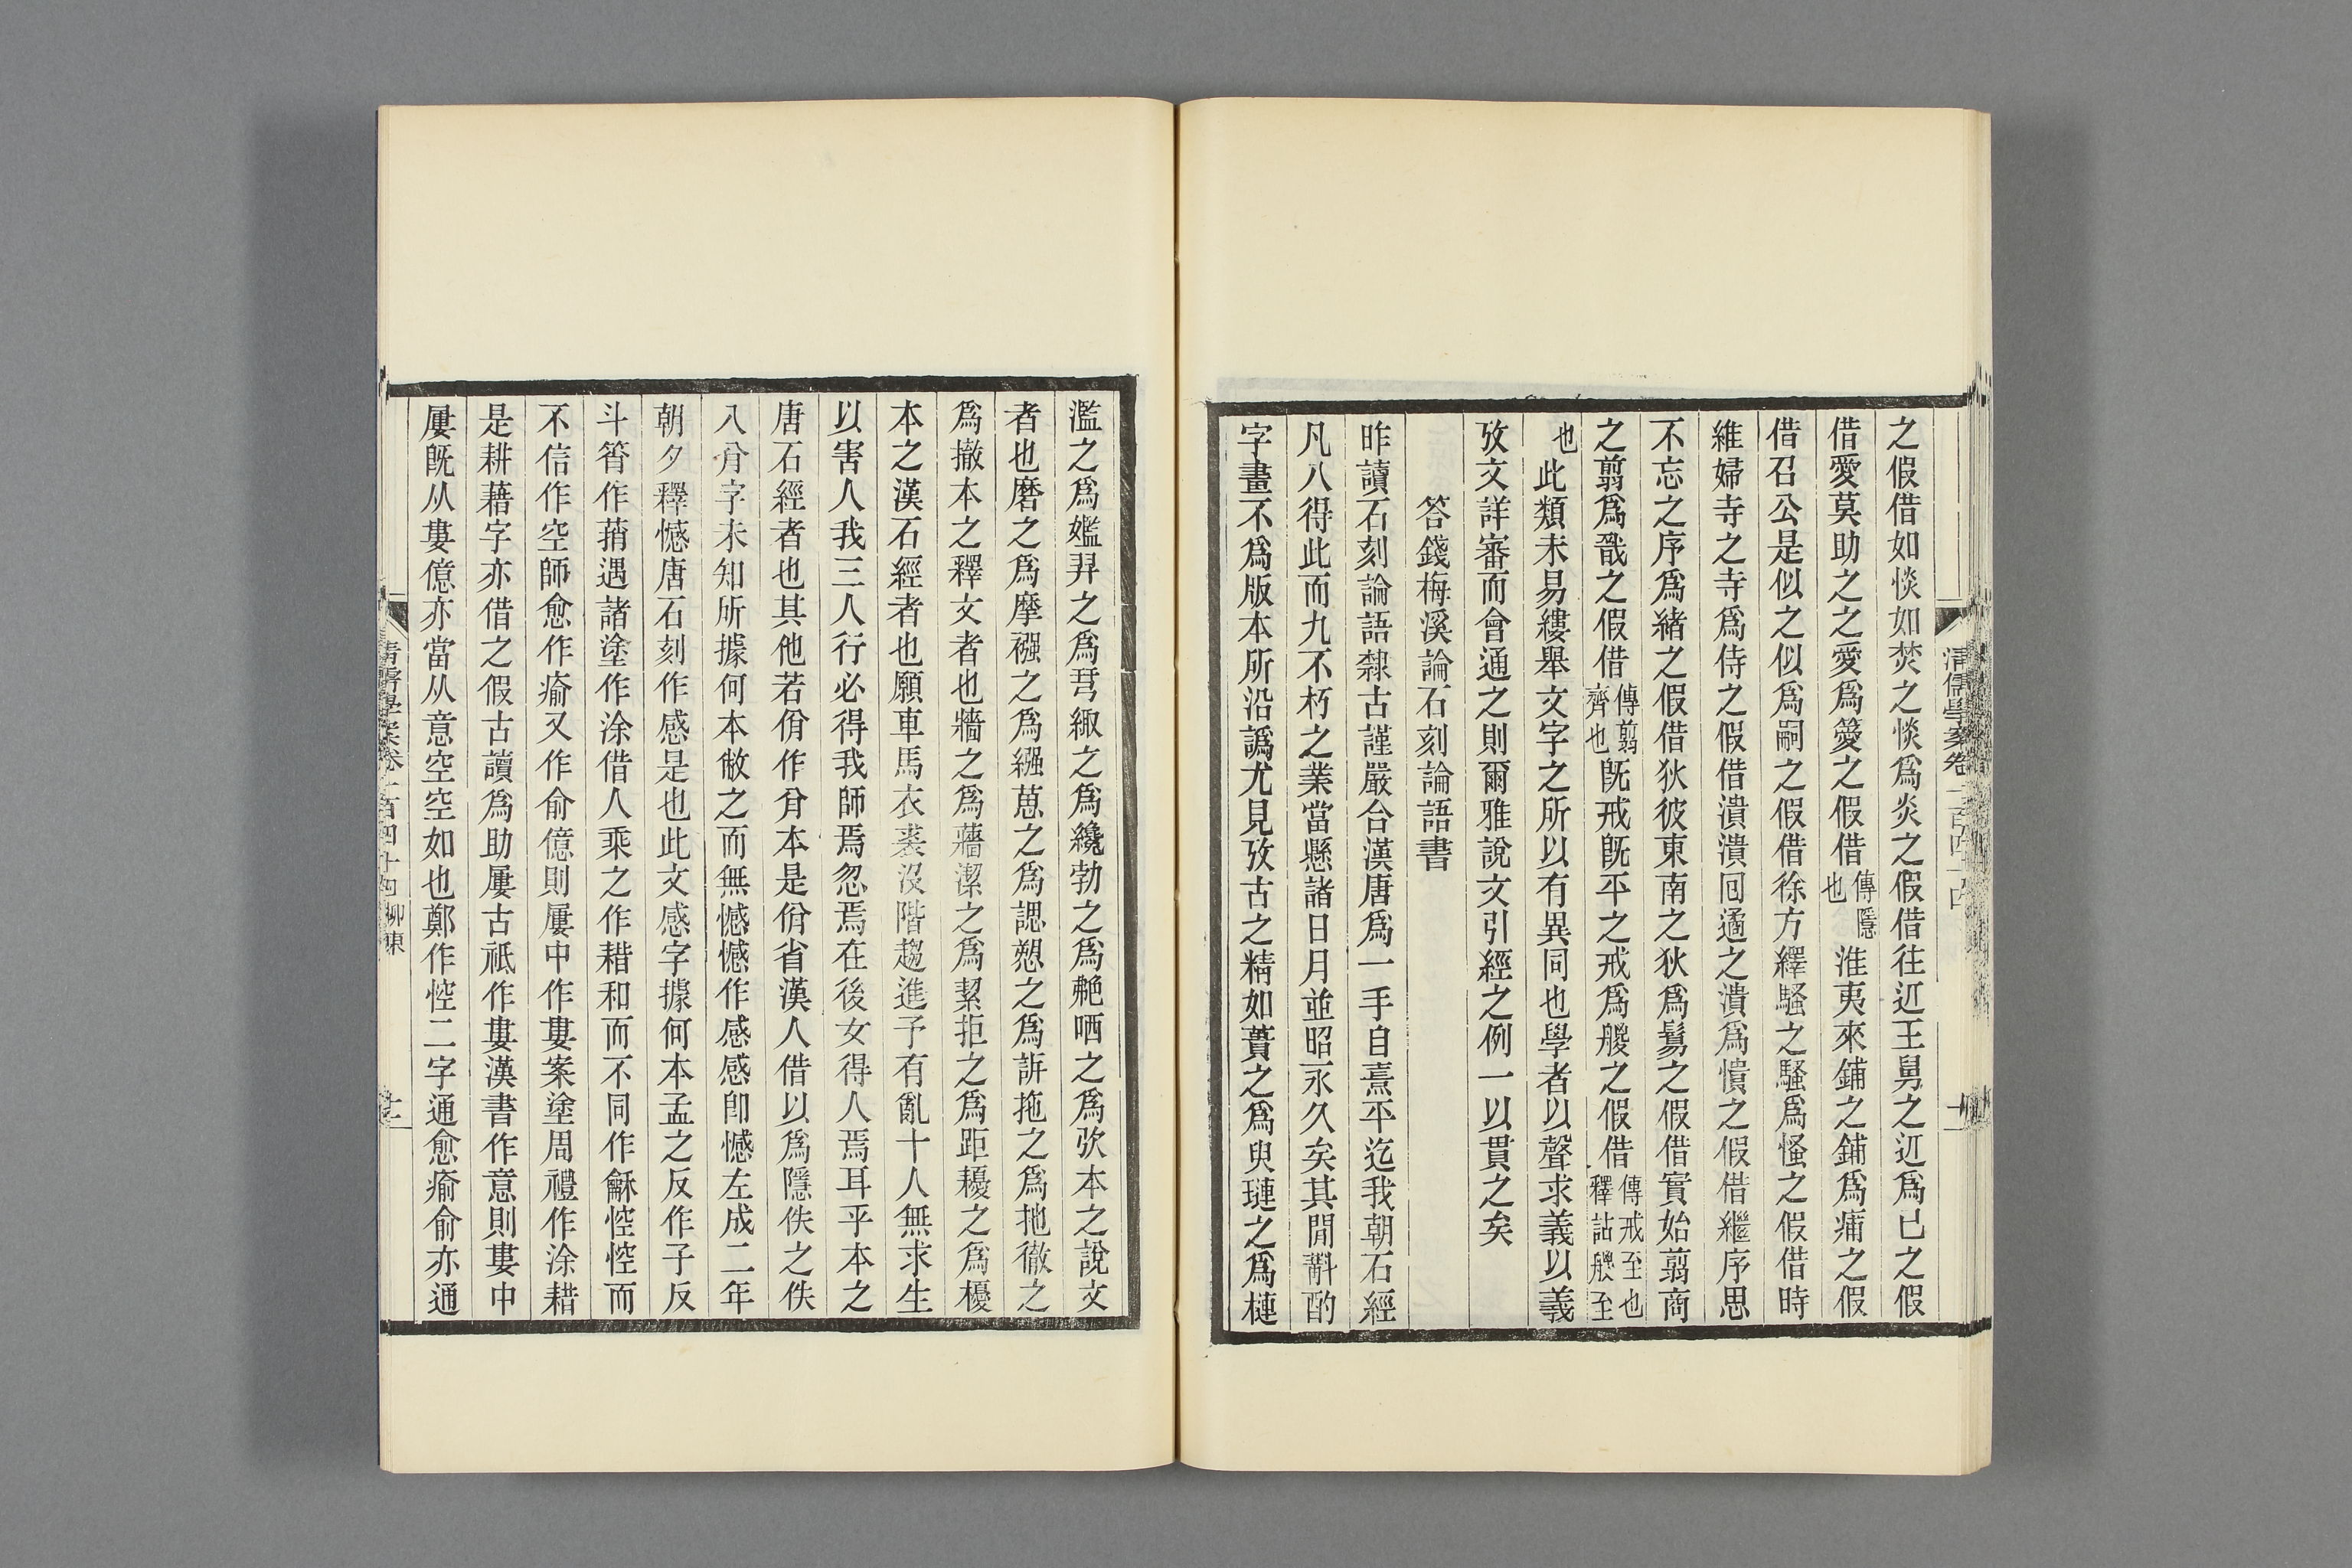 之假借如惔如焚之惔爲炎之假借往辺王舅之辺爲已之假
借愛莫助之之愛爲薆之假借傳隱也淮夷來鋪之鋪爲痡之假
借召公是似之似爲嗣之假借徐方繹騷之騷爲慅之假借時
維婦寺之寺爲侍之假借潰潰囘遹之潰爲憒之假借繼序思
不忘之序爲緒之假借狄彼東南之狄爲鬄之假借實始翦商
之翦爲戩之假借傳翦齊也旣戒旣平之戒爲艐之假借傳戒至也釋詁艐至
也此類未易縷舉文字之所以有異同也學者以聲求義以義
攷文詳審而會通之則爾雅說文引經之例一以貫之矣
答錢梅溪論石刻論語書
昨讀石刻論語隸古謹嚴合漢唐爲一手自熹平迄我朝石經
凡八得此而九不朽之業當懸諸日月並昭永久矣其閒斠酌
字畫不爲版本所沿譌尤見攷古之精如蕢之爲臾璉之爲槤
濫之爲嬐羿之爲𢎗緅之爲纔勃之爲艴哂之爲弞本之說文
者也磨之爲摩襁之爲繈葸之爲諰愬之爲訴拖之爲扡徹之
爲撤本之釋文者也牆之爲蘠潔之爲絜拒之爲距耰之爲櫌
本之漢石經者也願車馬衣裘沒階趨進予有亂十人無求生
以害人我三人行必得我師焉忽焉在後女得人焉耳乎本之
唐石經者也其他若佾作㑞本是佾省漢人借以爲隱佚之佚
八㑞字未知所據何本敝之而無憾憾作感感卽憾左成二年
朝夕釋憾唐石刻作感是也此文感字據何本孟之反作子反
斗筲作䈰遇諸塗作涂借人乘之作耤和而不同作龢悾悾而
不信作空師愈作瘉又作俞億則屢中作婁案塗周禮作涂耤
是耕藉字亦借之假古讀爲助屢古祇作婁漢書作意則婁中
屢旣从婁億亦當从意空空如也鄭作悾二字通愈瘉俞亦通
清儒學案卷一百四十四 柳東 十二